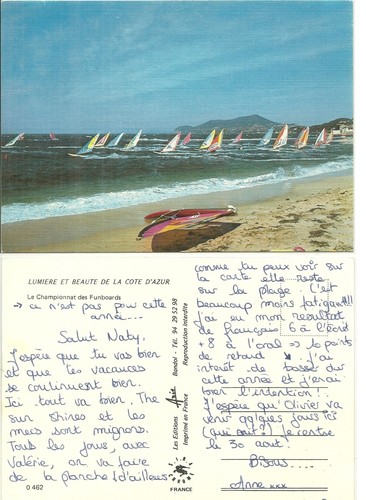 LUMIERE ET BEAUTE DE LA COTE D'AZUR
Le Championnat des Funboards
→ ce n'est pas pour cette
année...
Salut Naty,
J'espère que tu vas bien
et que les vacances
se continuent bien.
Ici tout va bien. The
sun shines et les
mecs sont mignons.
Tous les jours, avec
Valérie, on va faire
de la planche (d'ailleurs
0 462
Les Editions Azie
Imprimé en France
Bandol - Tél. 94 29 52 98
Reproduction Interdite
FRANCE
comme tu peux voir sur
la carte elle reste
sur la plage. C'est
beaucoup moins fatigant!!!
J'ai eu mon résultat
de français 6 à l'écrit
+ 8 à l'oral => 10 points
de retard j'ai
intérêt de bosser dur
cette année et j'en ai
bien l'intention!
J'espère qu'Olivier va
venir qqles jours ici
(qui sait?) Je rentre
le 30 août.
Bisous....
Anne xxx